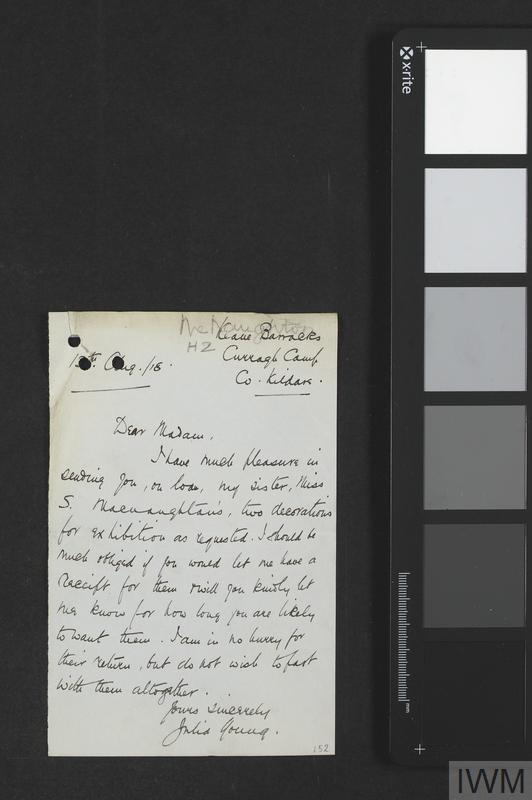 MacNaughton
H2
Keane Barracks
Curragh Camp
Co. Kildare.
15th Aug. /18.
Dear Madam,
I have much pleasure in
sending you, on loan, my sister, Miss
S. Macnaughtan's, two decorations
for exhibition as requested. I should be
much obliged if you would let me have a
receipt for them & will you kindly let
me know for how long you are likely
to want them. I am in no hurry for
their return, but do not wish to part
with them altogether.
Yours sincerely
Julia Young.
152
x·rite
mm
IWM